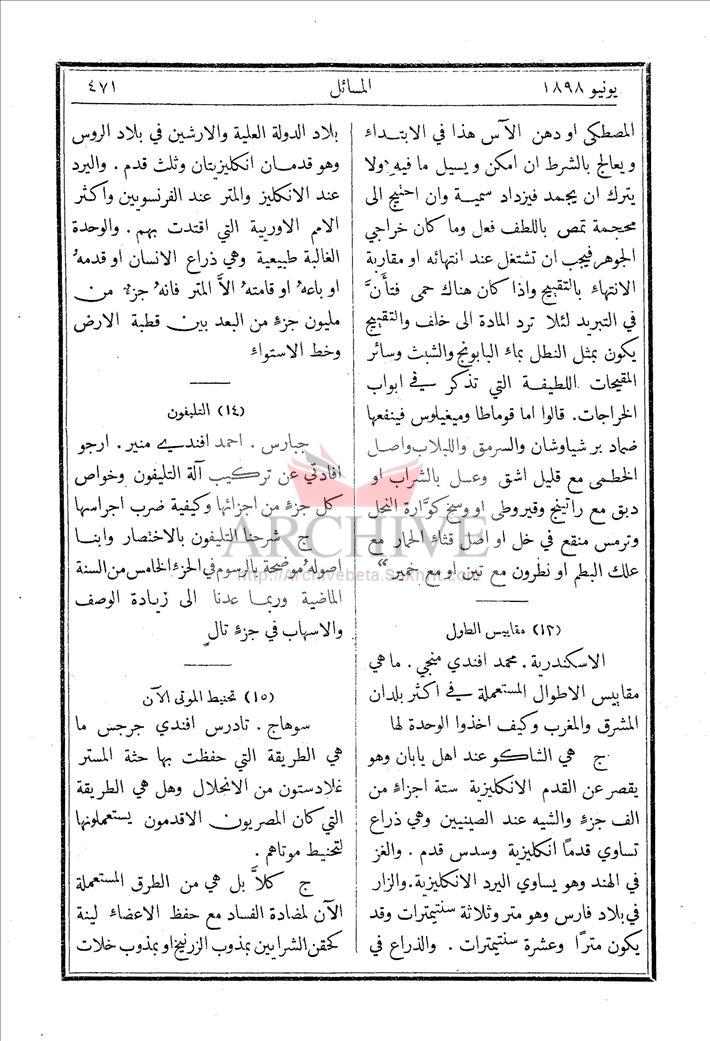 يونيو ١٨٩٨
المسائل
٤٧١
المصطكى او دهن الآس هذا في الابتداء
ويعالج بالشرط ان امكن ويسيل ما فيه ولا
يترك ان يجمد فيزداد سمية وان احتيج الى
محجمة تمص باللطف فعل وما كان خراجي
الجوهر فيجب ان تشتغل عند انتهائه او مقاربة
الانتهاء بالتقييح واذا كان هناك حمى فتأنَّ
في التبريد لئلا ترد المادة الى خلف والتقييح
يكون بمثل النطل بماء البابونج والشبث وسائر
المقيحات اللطيفة التي تذكر في ابواب
الخراجات. قالوا اما قوماطا وميغيلوس فينفعها
ضماد برشياوشان والسرمق واللبلاب واصل
الخطمى مع قليل اشق وعسل بالشراب او
دبق مع راتينج وقيروطي او وسخ كوَّارة النحل
وترمس منقع في خل او اصل قثاء الحمار مع
علك البطم او نطرون مع تين او مع خمير"
(١٣) مقاييس الطول
الاسكندرية . محمد افندي منجي . ما هي
مقاييس الاطوال المستعملة في اكثر بلدان
المشرق والمغرب وكيف اخذوا الوحدة لها
ج هي الشاكو عند اهل يابان وهو
يقصر عن القدم الانكليزية ستة اجزاء من
الف جزء والشيه عند الصينيين وهي ذراع
تساوي قدمًا انكليزية وسدس قدم . والغز
في الهند وهو يساوي اليرد الانكليزية. والزار
في بلاد فارس وهو متر وثلاثة سنتيمترات وقد
يكون مترًا وعشرة سنتيمترات . والذراع في
بلاد الدولة العلية والارشين في بلاد الروس
وهو قدمان انكليزيتان وثلث قدم . واليرد
عند الانكليز والمتر عند الفرنسويين واكثر
الامم الاوربية التي اقتدت بهم . والوحدة
الغالبة طبيعية وهي ذراع الانسان او قدمهُ
او باعهُ او قامتهُ الاَّ المتر فانهُ جزء من
مليون جزء من البعد بين قطبة الارض
وخط الاستواء
(١٤) التليفون
جبارس . احمد افندي منير . ارجو
افادتي عن تركيب آلة التليفون وخواص
كل جزء من اجزائها وكيفية ضرب اجراسها
ج شرحنا التليفون بالاختصار وابنا
اصولهُ موضحة بالرسوم في الجزء الخامس من السنة
الماضية وربما عدنا الى زيادة الوصف
والاسهاب في جزء تالٍ
(١٥) تحنيط الموتى الآن
سوهاج . تادرس افندي جرجس ما
هي الطريقة التي حفظت بها جثة المستر
غلادستون من الانحلال وهل هي الطريقة
التي كان المصريون الاقدمون يستعملونها
لتحنيط موتاهم .
ج كلاَّ بل هي من الطرق المستعملة
الآن لمضادة الفساد مع حفظ الاعضاء لينة
كحقن الشرايين بمذوب الزرنيخ او بمذوب خلات
ARCHIVE
http://archivebeta.Sakhrit.com